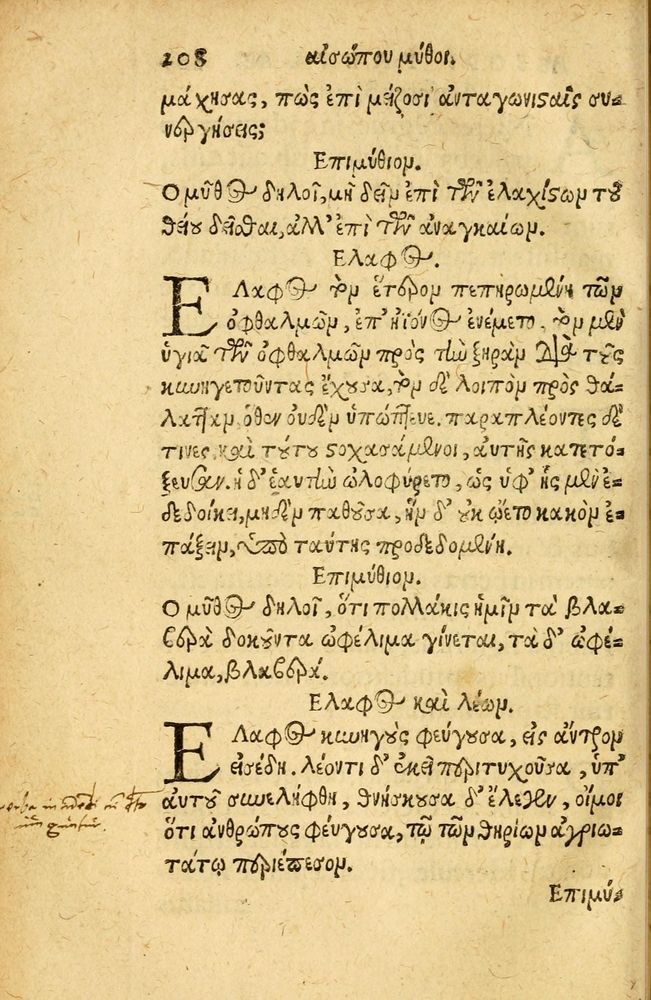 208 αἰσώπου μύθοι.
μάχησας, πῶς ἐπὶ μείζοσι ἀνταγωνισαῖς συν-
εργήσεις;
Επιμύθιον.
Ο μῦθος δηλοῖ, μὴ δεῖν ἐπὶ τῶν ἐλαχίστων τοῦ
θείου δεῖσθαι, ἀλλ' ἐπὶ τῶν ἀναγκαίων.
Ελαφος.
ΕΛαφος τὸν ἕτερον πεπηρωμένη τῶν
ὀφθαλμῶν, ἐπ' ἠϊόνος ἐνέμετο. τὸν μὲν
ὑγιᾶ τῶν ὀφθαλμῶν πρὸς τὴν ξηρὰν διὰ τοὺς
κυνηγετοῦντας ἔχουσα, τὸν δὲ λοιπὸν πρὸς θά-
λατταν, ὅθεν οὐδὲν ὑπώπτευε. παραπλέοντες δέ
τινες, καὶ τούτου στοχασάμενοι, αὐτῆς κατετό-
ξευσαν. ἡ δ' ἑαυτὴν ὠλοφύρετο, ὡς ὑφ' ἧς μὲν ἐ-
δεδοίκει, μηδὲν παθοῦσα, ἣν δ' οὐκ ᾤετο κακὸν ἐ-
πάξειν, ὑπὸ ταύτης προδεδομένη.
Επιμύθιον.
Ο μῦθος δηλοῖ, ὅτι πολλάκις ἡμῖν τὰ βλα-
βερὰ δοκοῦντα ὠφέλιμα γίνεται, τὰ δ' ὠφέ-
λιμα, βλαβερά.
Ελαφος καὶ λέων.
ΕΛαφος κυνηγοὺς φεύγουσα, εἰς ἄντρον
εἰσέδη. λέοντι δ' ἐκεῖ περιτυχοῦσα, ὑπ'
αὐτοῦ συνελήφθη, θνήσκουσα δ' ἔλεγεν, οἴμοι
ὅτι ἀνθρώπους φεύγουσα, τῷ τῶν θηρίων ἀγριω-
τάτῳ περιέπεσον.
Επιμύ-